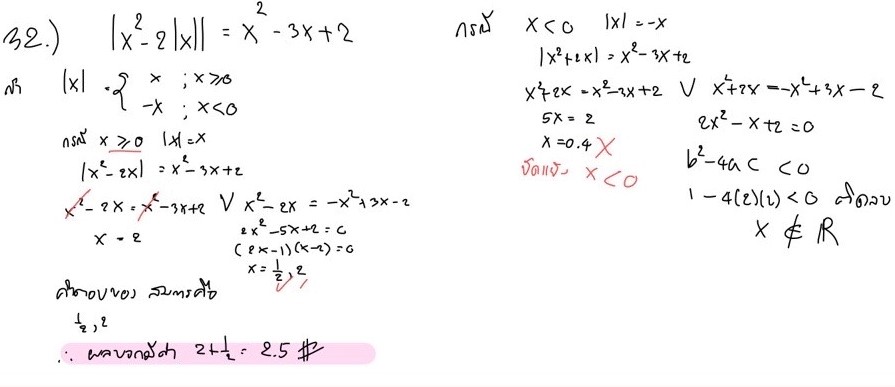 32.) |x² - 2|x|| = x² - 3x + 2
|x| = { x ; x ≥ 0
-x ; x < 0
กรณี x ≥ 0 |x| = x
|x² - 2x| = x² - 3x + 2
x² - 2x = x² - 3x + 2 ∨ x² - 2x = -x² + 3x - 2
x = 2
2x² - 5x + 2 = 0
(2x-1)(x-2) = 0
x = ½, 2
คำตอบของ สมการคือ
½, 2
∴ ผลบวกมีค่า 2 + ½ = 2.5 #
กรณี x < 0 |x| = -x
|x² + 2x| = x² - 3x + 2
x² + 2x = x² - 3x + 2 ∨ x² + 2x = -x² + 3x - 2
5x = 2
x = 0.4 ✗
ขัดแย้ง x < 0
2x² - x + 2 = 0
b² - 4ac < 0
1 - 4(2)(2) < 0 ติดลบ
x ∉ R